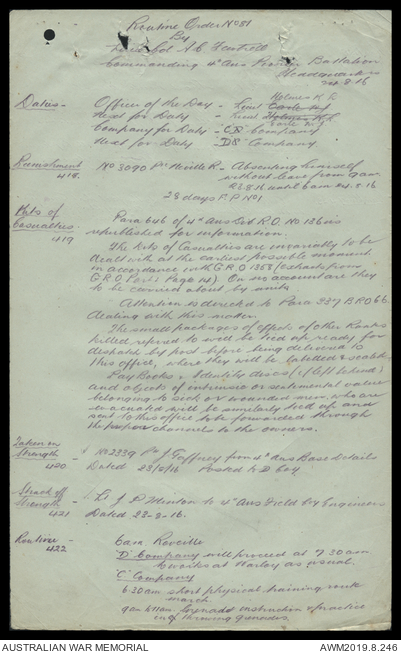 Routine Order No 81
By
Lieut Col A C Fewtrell
Commanding 4th Aus Pioneer Battalion
Headquarters
24.8.16
Duties - Officer of the Day - Lieut Carle Holmes K R
Next for Duty - Lieut Holmes K R
Company for Duty - "C" Company
Next for Duty - "D" Company
Punishment 418. No 3090 Pte Neville R - Absenting himself
without leave from 9am
23.8.16 until 6am 24.8.16
28 days F.P No 1
Kits of
Casualties
419
Para 646 of 4th Aus Div R.O. No 136 is
republished for information.
The Kits of Casualties are invariably to be
dealt with at the earliest possible moment
in accordance with G.R.O 1358 (Extracts from
G.R.O Part 1 Page 14). On no account are they
to be carried about by units
Attention is directed to Para 337 BRO 66
dealing with this matter.
The small packages of effects of other Ranks
killed referred to will be tied up ready for
despatch by post before being delivered to
this office, where they will be labelled & sealed.
Pay Books, Identity discs (if left behind)
and objects of intrinsic or sentimental value
belonging to sick or wounded men, who are
evacuated will be similarly tied up and
sent to this office to be forwarded through
the proper channels to the owners.
Taken on
Strength
420
No 2339 Pte J Gaffney from 4th Aus Base Details
Dated 23/8/16 Posted to D Coy
Struck off
Strength
421
Lt J P Minton to 4th Aus Field Coy Engineers
Dated 23-8-16.
Routine -
422
6am Reveille
"D" Company will proceed at 7 30 am
to works at Warloy as usual.
"C" Company
6 30 am short physical training
march
9am to 11am Grenade instruction & practice
in throwing grenades.
AUSTRALIAN WAR MEMORIAL
AWM2019.8.246